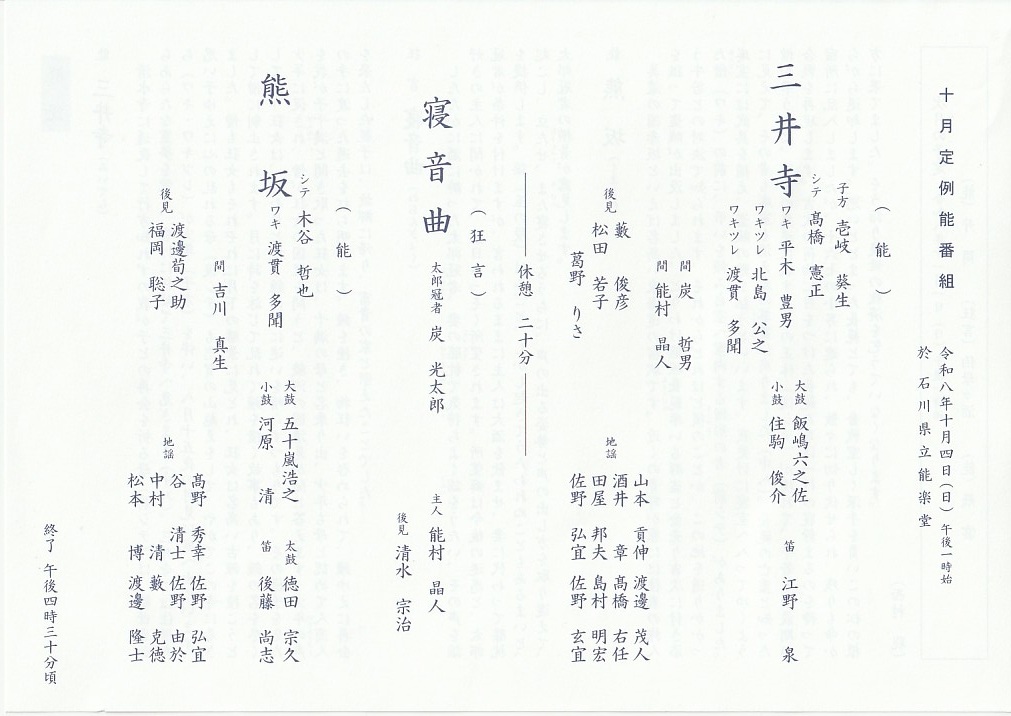 十月定例能番組
令和八年十月四日（日）午後一時始
於 石川県立能楽堂
（能）
三井寺
子方 壱岐 葵生
シテ 髙橋 憲正
ワキ 平木 豊男
ワキツレ 北島 公之
ワキツレ 渡貫 多聞
大鼓 飯嶋六之佐
小鼓 住駒 俊介
笛 江野 泉
間 炭 哲男
間 能村 晶人
後見
藪 俊彦
松田 若子
葛野 りさ
地謡
山本 貢伸 渡邊 茂人
酒井 章 髙橋 右任
田屋 邦夫 島村 明宏
佐野 弘宜 佐野 玄宜
休憩 二十分
（狂言）
寝音曲
太郎冠者 炭 光太郎
主人 能村 晶人
後見 清水 宗治
（能）
熊坂
シテ 木谷 哲也
ワキ 渡貫 多聞
大鼓 五十嵐浩之
小鼓 河原 清
太鼓 徳田 宗久
笛 後藤 尚志
間 吉川 真生
後見
渡邊荀之助
福岡 聡子
地謡
髙野 秀幸 佐野 弘宜
谷 清士 佐野 由於
中村 清 藪 克徳
松本 博 渡邊 隆士
終了 午後四時三十分頃